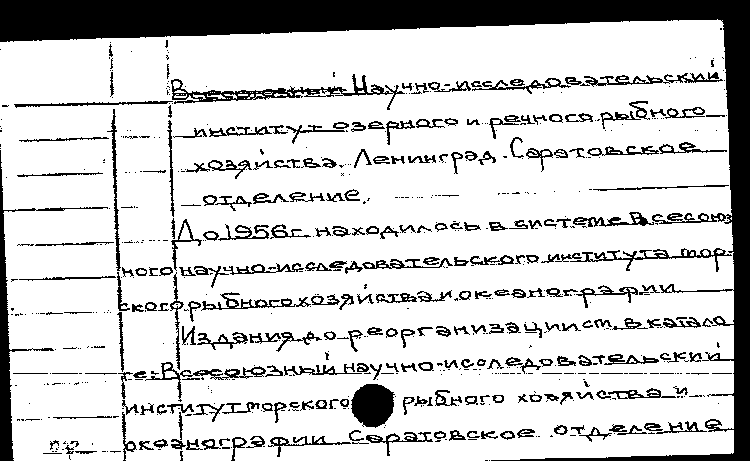 Всесоюзный Научно-исследовательский
институт озерного и речного рыбного
хозяйства. Ленинград. Саратовское
отделение.
До 1956г. находилось в системе Всесоюз
ного научно-исследовательского института мор-
ского рыбного хозяйства и океанографии
Издания до реорганизации см. в катало
ге: Всесоюзный научно-исследовательский
институт морского рыбного хозяйства и
океанографии Саратовское отделение